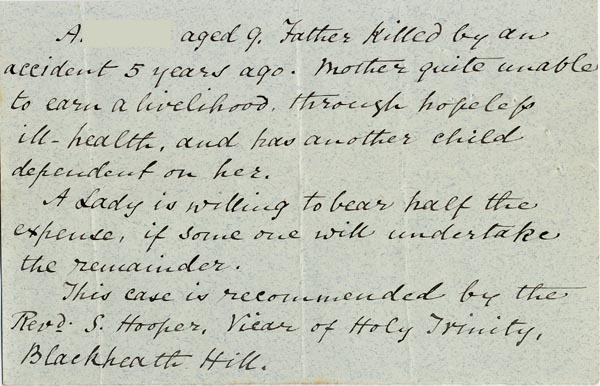 A. aged 9. Father Killed by an
accident 5 years ago. Mother quite unable
to earn a livelihood, through hopeless
ill-health, and has another child
dependent on her.
A Lady is willing to bear half the
expense, if some one will undertake
the remainder.
This case is recommended by the
Revd. S. Hooper, Vicar of Holy Trinity,
Blackheath Hill.